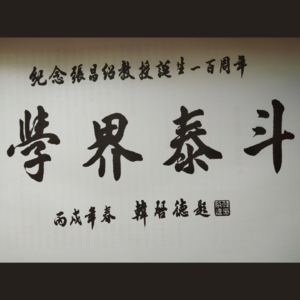 紀念張昌紹教授誕生一百周年
學界泰斗
丙戌年春 韓啓德題